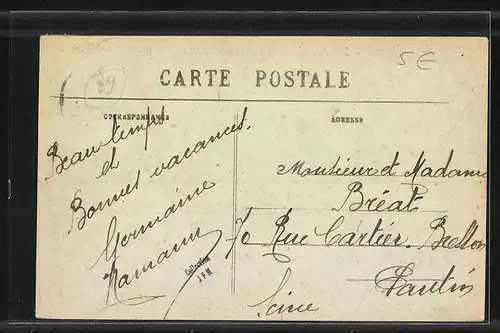 89
5E
CARTE POSTALE
CORRESPONDANCE
ADRESSE
Beau temps
et
Bonnes vacances.
Germaine
Hamann
Collection
J F M
Monsieur et Madame
Bréat
70 Rue Cartier-Bresson
Pantin
Seine